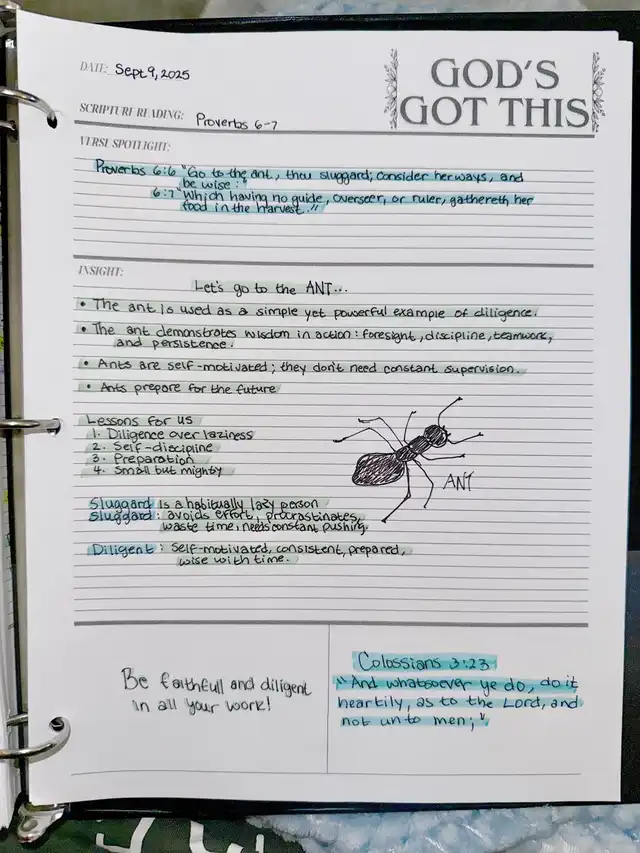 DATE: Sept 9, 2025
GOD'S
GOT THIS
SCRIPTURE READING: Proverbs 6-7
VERSE SPOTLIGHT:
Proverbs 6:6 "Go to the ant, thou sluggard; consider her ways, and
be wise:"
6:7 "Which having no guide, overseer, or ruler, gathereth her
food in the harvest."
INSIGHT:
Let's go to the ANT...
• The ant is used as a simple yet powerful example of diligence.
• The ant demonstrates wisdom in action: foresight, discipline, teamwork,
and persistence.
• Ants are self-motivated; they don't need constant supervision.
• Ants prepare for the future
Lessons for us
1. Diligence over laziness
2. Self-discipline
3. Preparation
4. Small but mighty
ANT
Sluggard is a habitually lazy person
Sluggard: avoids effort, procrastinates,
waste time, needs constant pushing.
Diligent: Self-motivated, consistent, prepared,
wise with time.
Be faithfull and diligent
in all your work!
Colossians 3:23
"And whatsoever ye do, do it
heartily, as to the Lord, and
not unto men;"